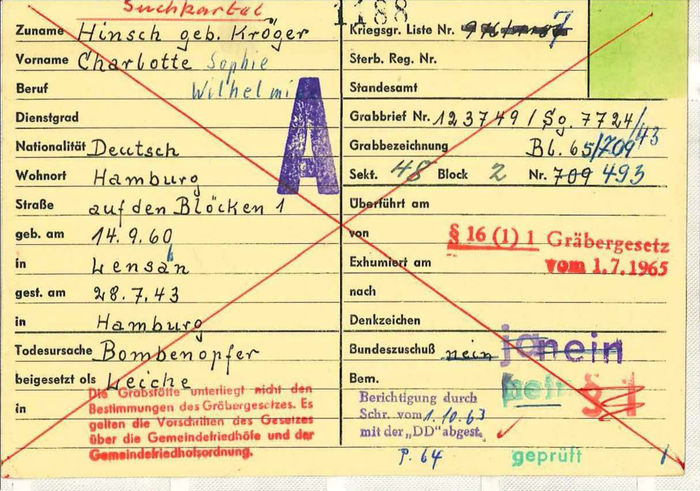 Suchkartei
1188
Zuname Hinsch geb. Kröger
Vorname Charlotte Sophie
Beruf Wilhelmi
Dienstgrad
Nationalität Deutsch
Wohnort Hamburg
Straße auf den Blöcken 1
geb. am 14.9.60
in Lensahn
gest. am 28.7.43
in Hamburg
Todesursache Bombenopfer
beigesetzt als Leiche
in
Die Grabstätte unterliegt nicht den
Bestimmungen des Gräbergesetzes. Es
gelten die Vorschriften des Gesetzes
über die Gemeindefriedhöfe und der
Gemeindefriedhofsordnung.
A
Kriegsgr. Liste Nr. 7
Sterb. Reg. Nr.
Standesamt
Grabbrief Nr. 123749 / Sg. 7724/43
Grabbezeichnung Bl. 65/709
Sekt. 48 Block 2 Nr. 709 493
Überführt am
von
§ 16 (1) 1 Gräbergesetz
Exhumiert am
vom 1.7.1965
nach
Denkzeichen
Bundeszuschuß nein ja nein
Bem. nein § 1
Berichtigung durch
Schr. vom 1.10.63
mit der „DD" abgest.
P. 64
geprüft